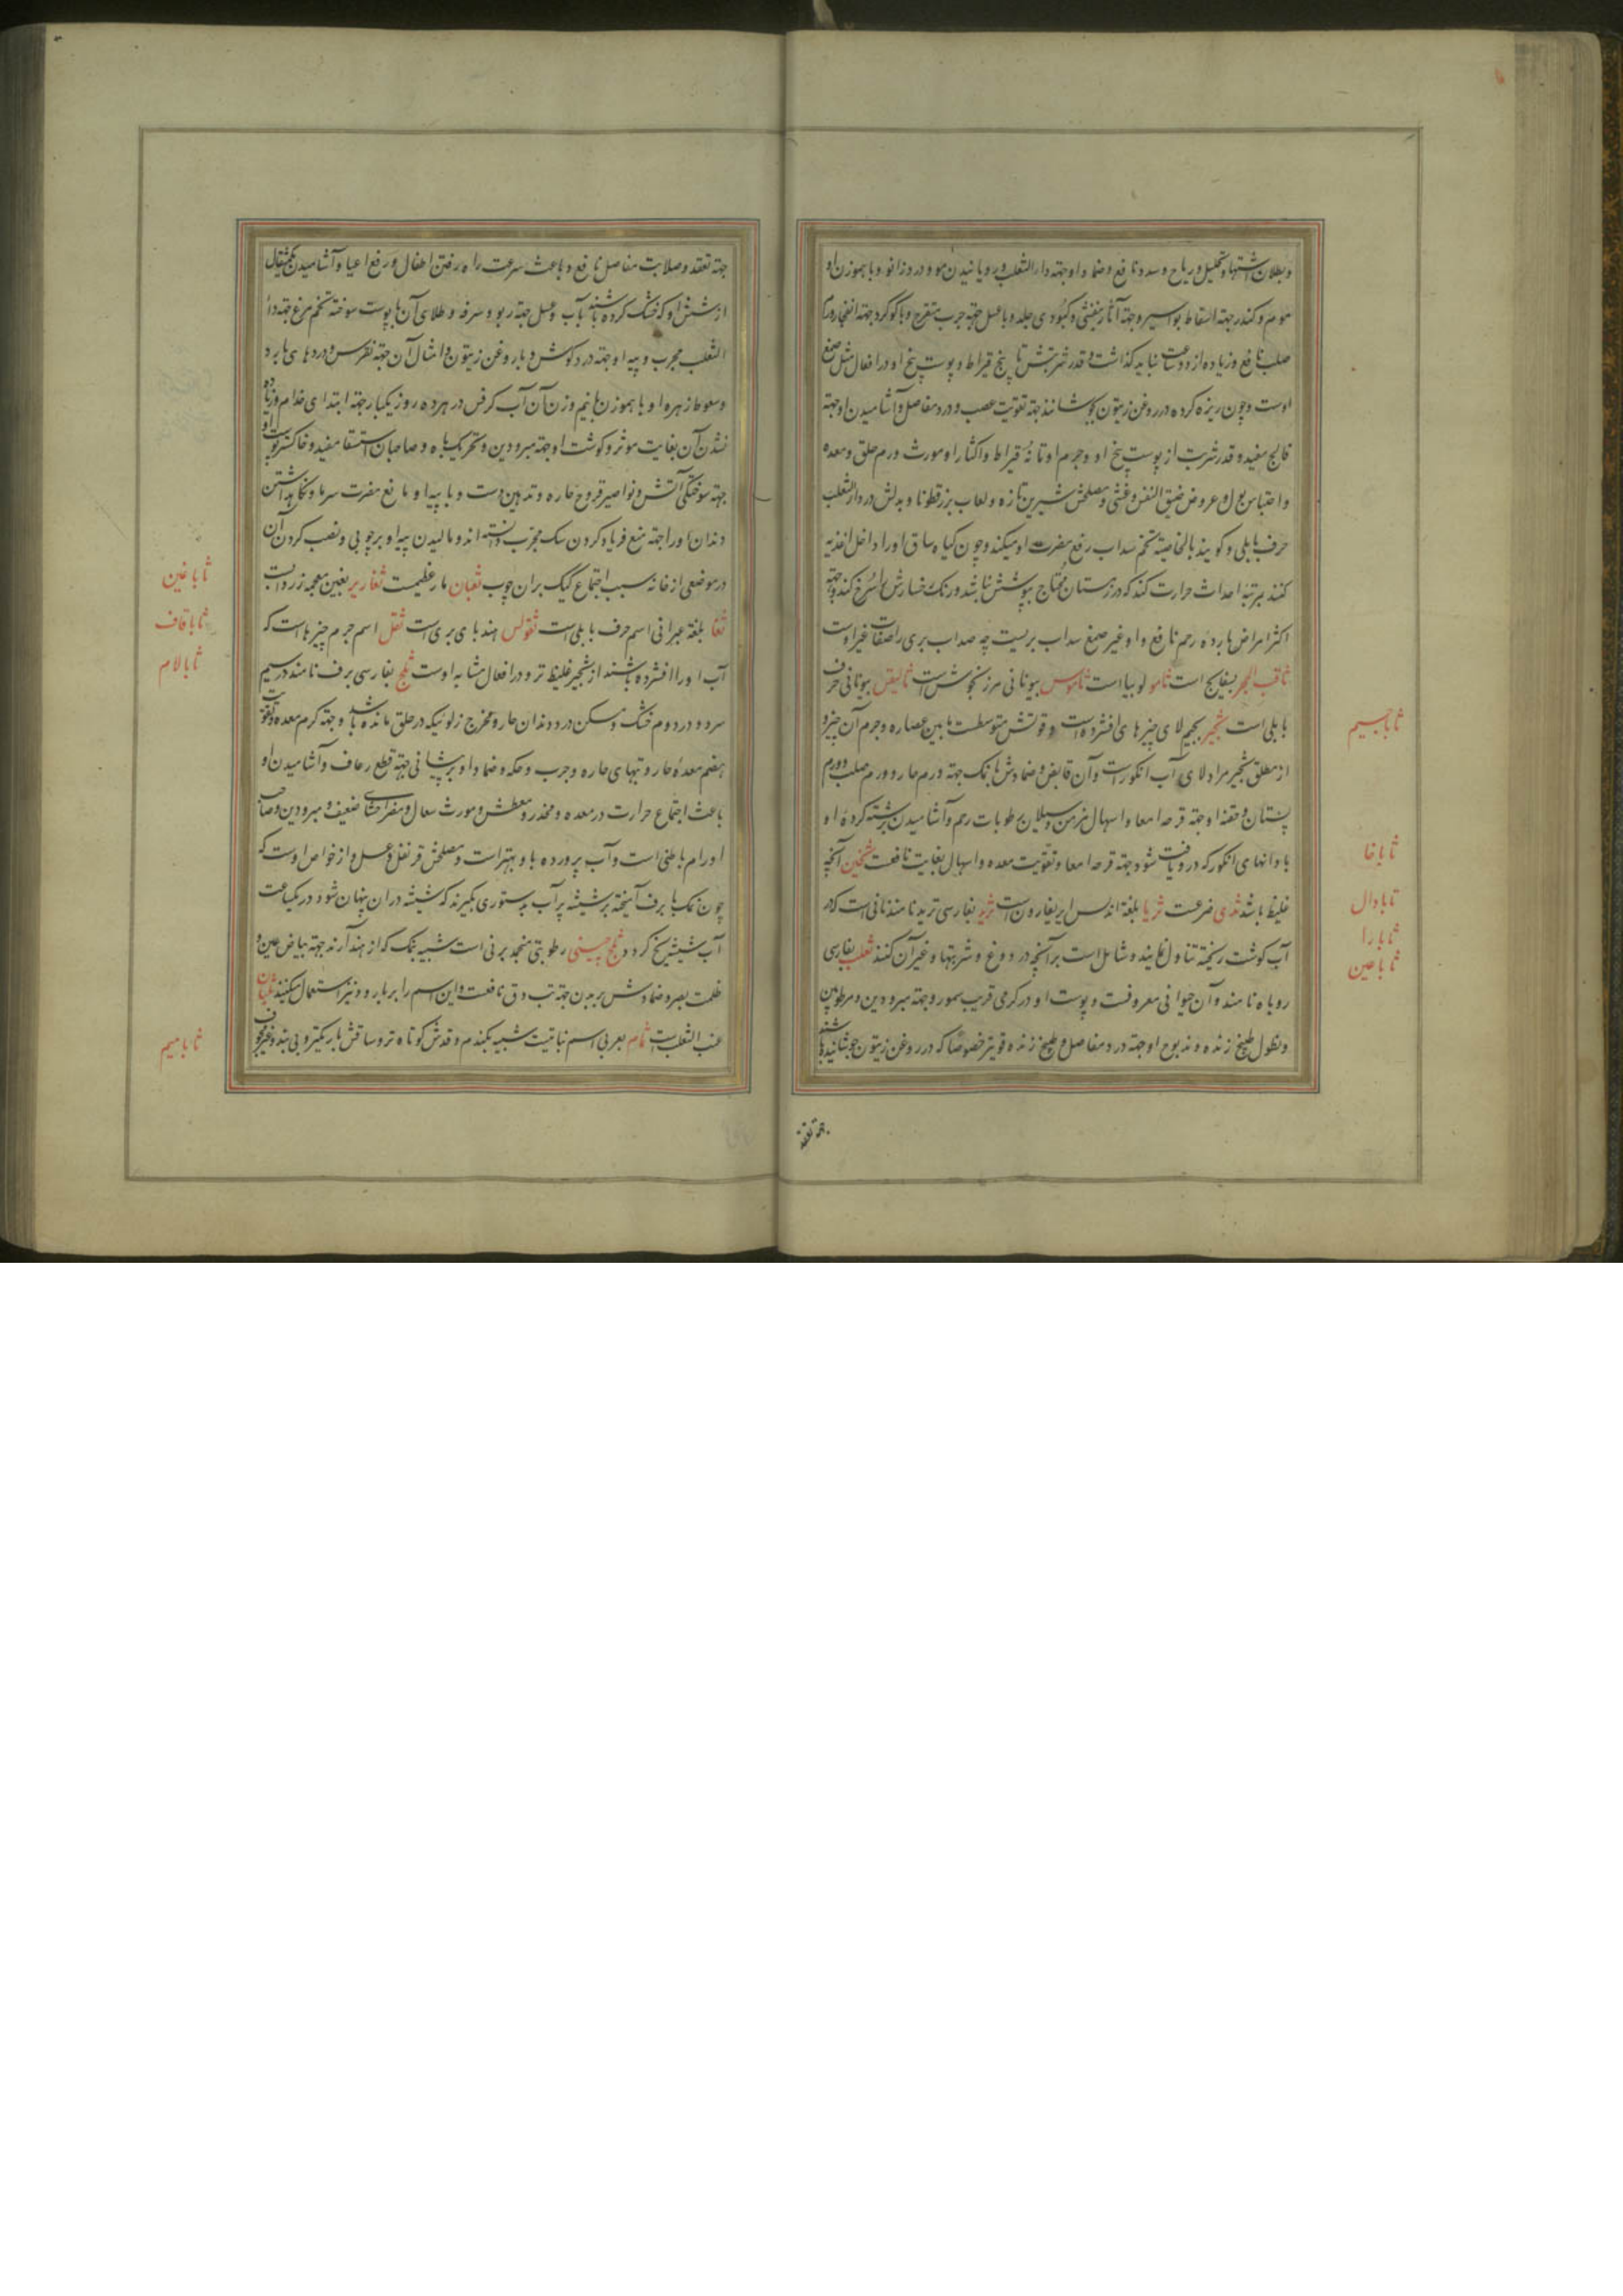 و بطلان اشتها و تحلیل ریاح و سدد نافع و ضماد او جهة داء الثعلب و رویانیدن مو و درد زانو و با هموزن او
موم و کندر جهة اسقاط بواسیر و جهة آثار بنفشی و کبودی جلد و با عسل جهة جرب متقرح و با گوگرد جهة انفجار ورم
صلب نافع و زیاده از دو ساعت نباید گذاشت و قدر شربتش تا پنج قیراط و پوست بیخ او در افعال مثل صمغ
اوست و چون ریزه کرده در روغن زیتون بجوشانند جهة تقویت عصب و درد مفاصل و آشامیدن او جهة
فالج مفید و قدر شربت از پوست بیخ او و جرم او تا نه قیراط و اکثار او مورث ورم حلق و معده
و احتباس بول و عروض ضیق النفس و غشی و مصلحش شیرین تازه و لعاب بزرقطونا و بدلش در داء الثعلب
حرف بابلی و گویند بالخاصیة تخم سداب رفع مضرت او میکند و چون گیاه ساق او را داخل اغذیه
کنند بمرتبه احداث حرارت کند که در زمستان محتاج بپوشش نباشد و رنک رخسارش را سرخ کند و جهة
اکثر امراض بارده رحم نافع و او غیر صمغ سداب بریست چه صداب بری را صفات غیر اوست
ثاقب الحجر بسفایج است ثامو لوبیا است ثاموس بیونانی مرزنجوش است ثالیقن بیونانی حرف
بابلی است ثجیر بجیم لای چیزهای افشرده است و قوتش متوسطست مابین عصاره و جرم آن چیز و
از مطلق ثجیر مراد لای آب انگور است و آن قابض و ضمادش با نمک جهة ورم حار و ورم صلب و ورم
پستان و حقنه او جهة قرحه امعا و اسهال مزمن و سیلان رطوبات رحم و آشامیدن برشته کرده او
با دانهای انگور که در او یافت شود جهة قرحه امعا و تقویت معده و اسهال بغایت نافعست ثخین آنچه
غلیظ باشد ثدی ضرعست ثریا بلغة اندلس ایربغارون است ثرید بفارسی ترید نامند نانی است که در
آب گوشت ریخته تناول نمایند و شامل است بر آنچه در دوغ و شربتها و غیر آن کنند ثعلب بفارسی
روباه نامند و آن حیوانی معروفست و پوست او در گرمی قریب بسمور و جهة مبرودین و مرطوبین
و نطول طبیخ زنده و مذبوح او جهة درد مفاصل و طبیخ زنده قویتر خصوصا که در روغن زیتون جوشانیده باشند
ثا با جیم
ثا با خا
ثا با دال
ثا با را
ثا با عین
جهة تعقد
جهة تعقد و صلابت مفاصل نافع و باعث سرعت راه رفتن اطفال و رفع اعیا و آشامیدن یکمثقال
از شش او که خشک کرده باشند با آب و عسل جهة ربو و سرفه و طلای آن با پوست سوخته تخم مرغ جهة داء
الثعلب مجرب و پیه او جهة درد گوش و با روغن زیتون و امثال آن جهة نقرس و دردهای بارد
و سعوط زهره او با هموزن یا نیم وزن آن آب کرفس در هر ده روز یکبار جهة ابتدای جذام و زیاده
نشدن آن بغایت موثر و گوشت او جهة مبرودین و تحریک باه و صاحبان استسقا مفید و خاکستر پوست او
جهة سوختگی آتش و نواصیر قروح حاره و تدهین دست و پا بپیه او مانع مضرت سرما و نگاهداشتن
دندان او را جهة منع فریاد کردن سک مجرب دانسته اند و مالیدن پیه او بر چوبی و نصب کردن آن
در موضعی از خانه سبب اجتماع کیک بر آن چوب ثعبان مار عظیمست ثغاریر بغین معجمه زرد است
ثفا بلغة عبرانی اسم حرف بابلی است ثقولس هندبای بری است ثفل اسم جرم چیزها است که
آب او را افشرده باشند از ثجیر غلیظ تر و در افعال مشابه اوست ثلج بفارسی برف نامند در سیم
سرد و در دوم خشک و مسکن درد دندان حار و مخرج زلو ئیکه در حلق مانده باشد و جهة گرم معده و تقویت
هضم معده حار و تبهای حاره و جرب و حکه و ضماد او بر پیشانی جهة قطع رعاف و آشامیدن او
باعث اجتماع حرارت در معده و مخدر و معطش و مورث سعال و مضر احشای ضعیف و مبرودین و صاحب
اورام باطنی است و آب پرورده باو بهتر است و مصلحش قرنفل و عسل و از خواص اوست که
چون نمک با برف آمیخته بر شیشه پر آب بدستوری بگیرند که شیشه در ان پنهان شود در یکساعت
آب شیشه یخ گردد ثلج چینی رطوبتی منجمد برنی است شبیه بنمک که از هند آرند جهة بیاض عین و
ظلمت بصر و ضمادش بر بدن جهة تب دق نافعست و این اسم را بر بارود نیز استعمال میکنند ثلثان
عنب الثعلب است ثمام بعربی اسم نباتیست شبیه بگندم و قدش کوتاه تر و ساقش باریکتر و بی بند و غیر مجوف
ثا با غین
ثا با قاف
ثا با لام
ثا با میم